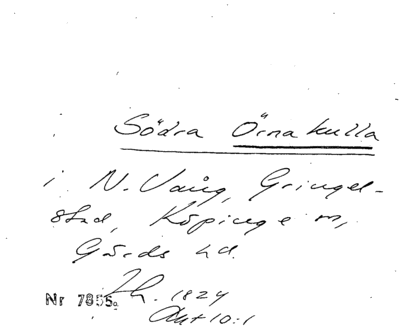 Södra Örnakulla
i N. Vång, Gringel-
stad, Köpinge sn,
Gärds hd.
Nr 7855a Lh. 1824
Akt 10:1